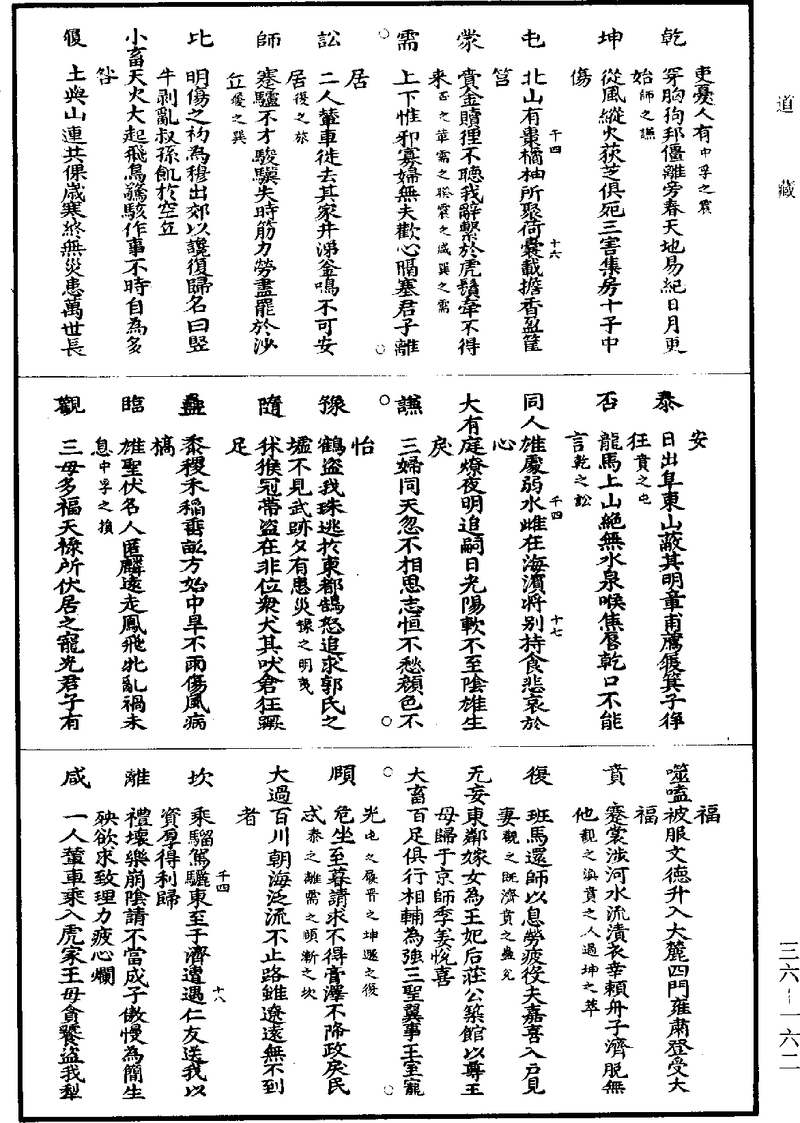 道藏
吏憂人有中孚之震
乾 穿胸狗邦僵離旁舂天地易紀日月更
始師之謙
坤 從風縱火荻芝俱死三害集房十子中
傷
屯 北山有棗橘柚所聚荷囊載擔香盈筐
筥
千四 十六
蒙 賫金贖狸不聽我辭繫於虎鬚牽不得
來否之革需之睽震之咸巽之需
需 上下惟邪寡婦無夫歡心隔塞君子離
居
訟 二人輦車徙去其家井沸釜鳴不可安
居復之旅
師 蹇驢不才駿驥失時筋力勞盡罷於沙
丘漸之巽
比 明傷之初為穆出郊以讒復歸名曰豎
牛剥亂叔孫飢於空丘
小畜 天火大起飛鳥驚駭作事不時自為多
咎
履 土與山連共保歲寒終無災患萬世長
安
泰 日出阜東山蔽其明章甫薦履箕子徉
狂賁之屯
否 龍馬上山絕無水泉喉焦脣乾口不能
言乾之訟
同人 雄處弱水雌在海濱將别持食悲哀於
心
千四 十七
大有 庭燎夜明追嗣日光陽軟不至陰雄生
戾
謙 三婦同夫忽不相思志恒不愁顏色不
怡
豫 鶴盜我珠逃於東都鵠怒追求郭氏之
墟不見武跡夕有患災豫之明夷
隨 狀猴冠帶盜在非位衆犬共吠倉狂蹶
足
蠱 黍稷禾稻垂畝方始中旱不雨傷風病
槁
臨 雄聖伏名人匿麟遠走鳳飛北亂禍未
息中孚之損
觀 三毋多福天祿所伏居之寵光君子有
福
噬嗑 被服文德升入大麓四門雍肅登受大
福
賁 蹇裳涉河水流漬衣幸賴舟子濟脫無
他觀之漁賁之人過坤之萃
復 班馬還師以息勞疲役夫嘉喜入戶見
妻觀之既濟賁之蠱兌
无妄 東鄰嫁女為王妃后莊公築館以尊王
母歸于京師季姜悅喜
大畜 百足俱行相輔為強三聖翼事王室寵
光屯之履晉之坤遯之復
頤 危坐至暮請求不得膏澤不降政戾民
忒泰之離需之頤漸之坎
大過 百川朝海泛流不止路雖遼遠無不到
者
坎 乘騮駕驪東至于濟遭遇仁友送我以
資厚得利歸
千四 十八
離 禮壞樂崩陰請不當成子傲慢為簡生
殃欲求致理力疲心爛
咸 一人輦車乘入虎家王母貪饕盜我犁
三六—一六二